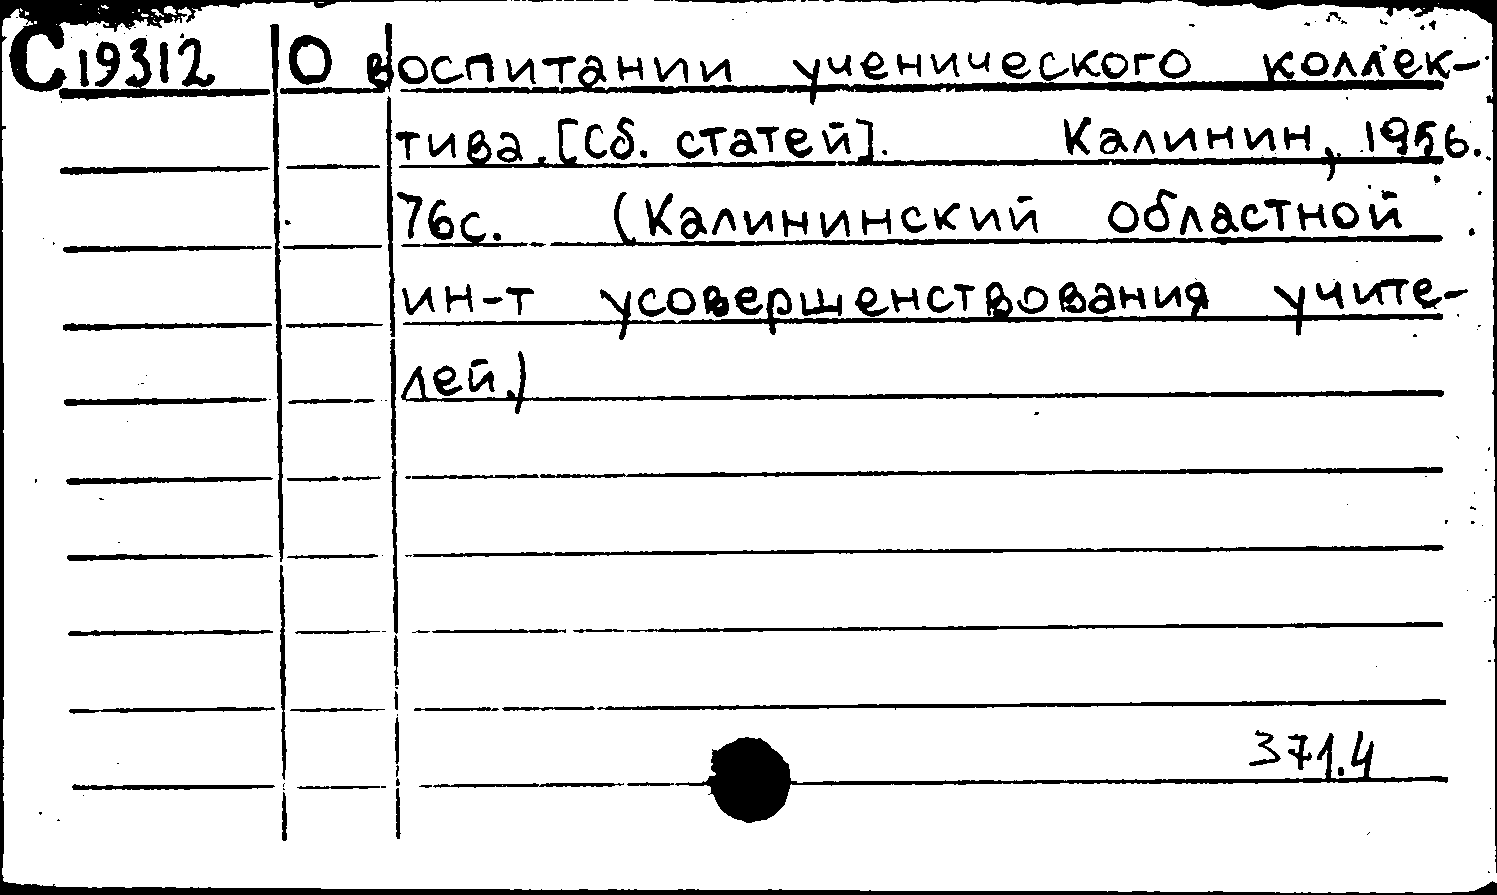 С 19312 О воспитании ученического коллек-
тива. [Сб. статей]. Калинин, 1956.
76с. (Калининский областной
ин-т усовершенствования учите-
лей.)
371.4